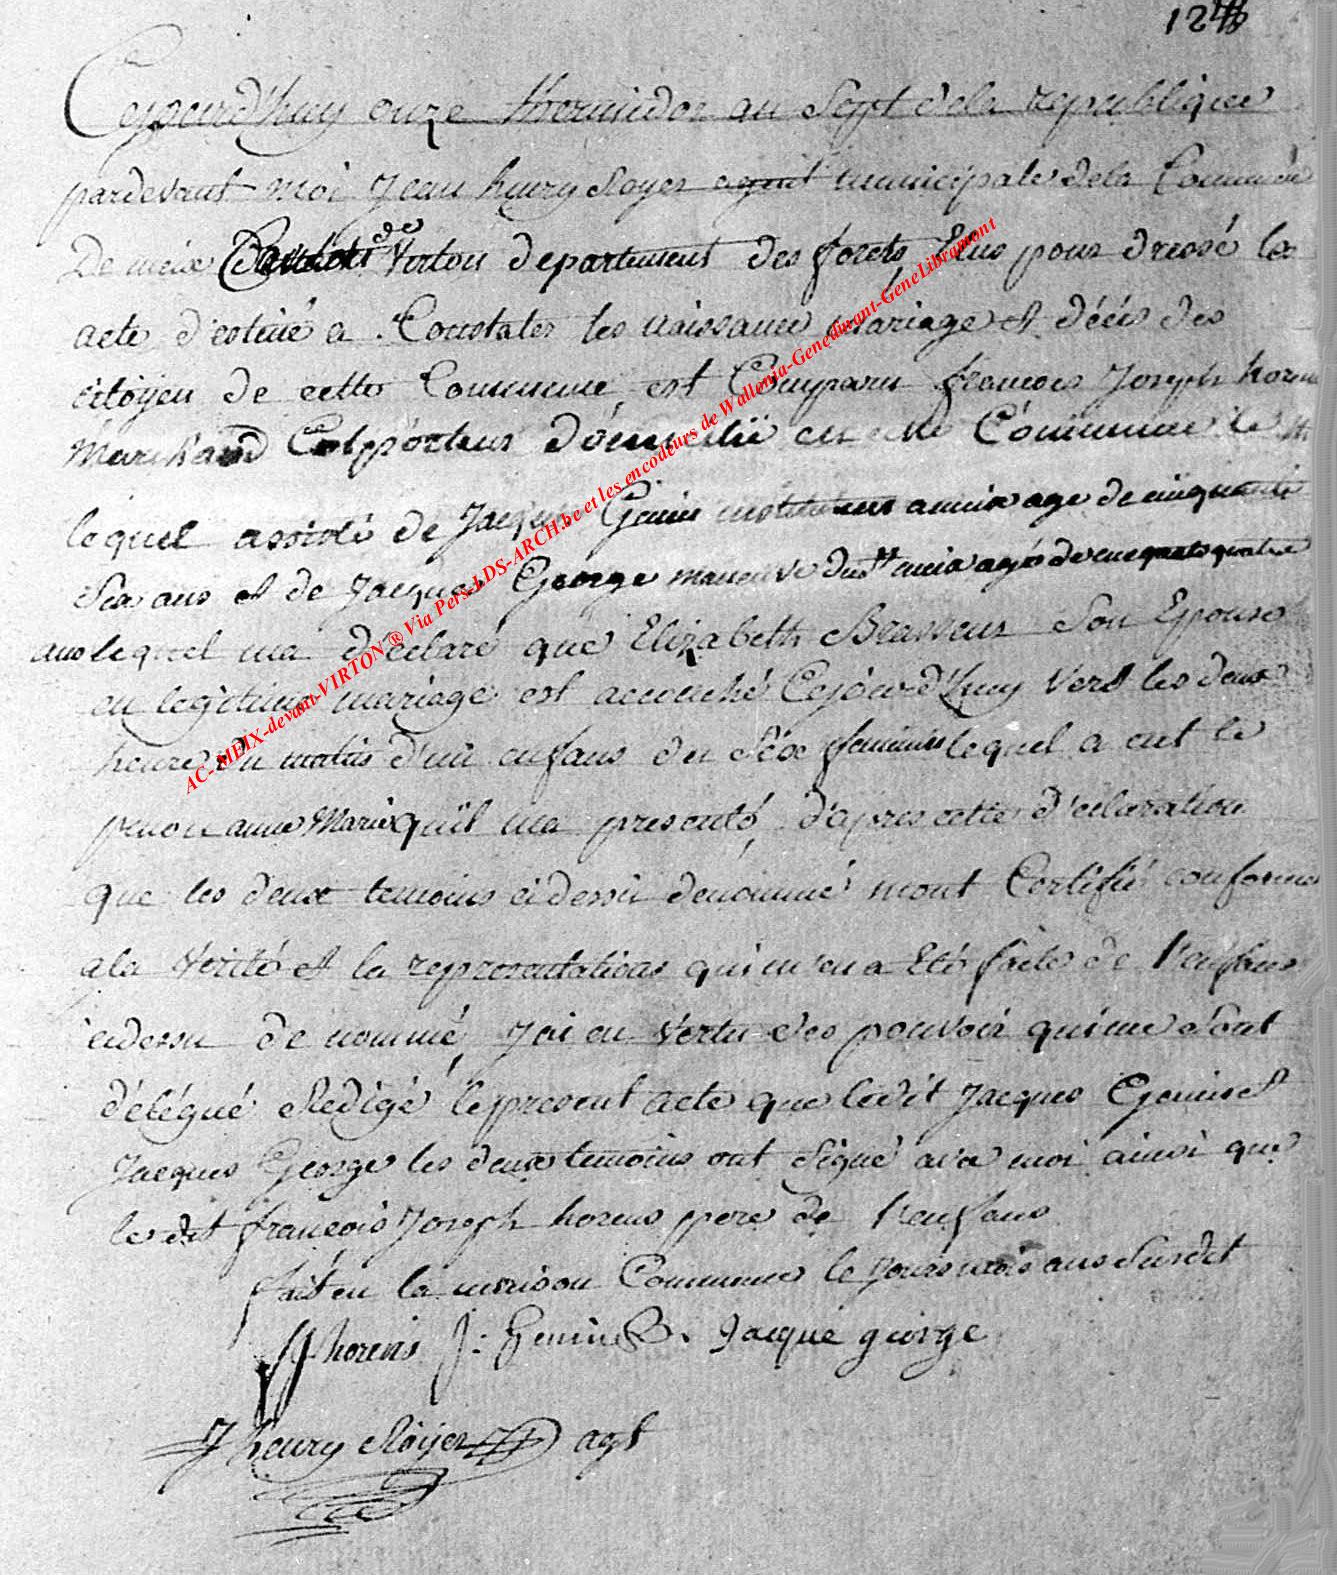 12
Cejourd'huy onze thermidor an Sept dela republique
pardevant moi Jean henry Royer agent municipale dela Commune
De meix Canton de Virton departement des forets, Elus pour dressé les
acte d'estiné a Constater les naissance Mariage et décés des
citoyen de cette Commune est Comparu francois Joseph horens
Marchand Colpörteur domicilié en cette Commune
lequel assisté de Jacques Genin instituteur a meix age de cinquante
Six ans et de Jacques George manœuvre dudt meix agé de quatre
ans lequel ma déclaré que Elizabeth Brasseur Son Epouse
en legitime mariage est accouché Cejourd'huy Vers les deux
heure du matin d'un enfans du Séxe feminin lequel a eut le
penon anne Marie quïl ma presenté, d'apres cette d'éclaration
que les deux temoins cidessu dénommé mont Certifié conforme
a la Verité et la representations quimena Eté faite de l'enfans
cidessu de nommé, Jai en vertu des pouvoir quime Sont
délégué Redigé le present acte que ledit Jacques Genin et
Jacques George les deux temoins ont Signé avec moi ainsi que
le dit francois Joseph horens pere de l'enfans
fait en la maison Commune le jours mois ans Susdit
horens J: Genin Jacque george
J henry Röyer agt
AC-MEIX-devant-VIRTON ® Via Pers-LDS-ARCH.be et les encodeurs de Wallonia-Genedinant-GeneLibramont